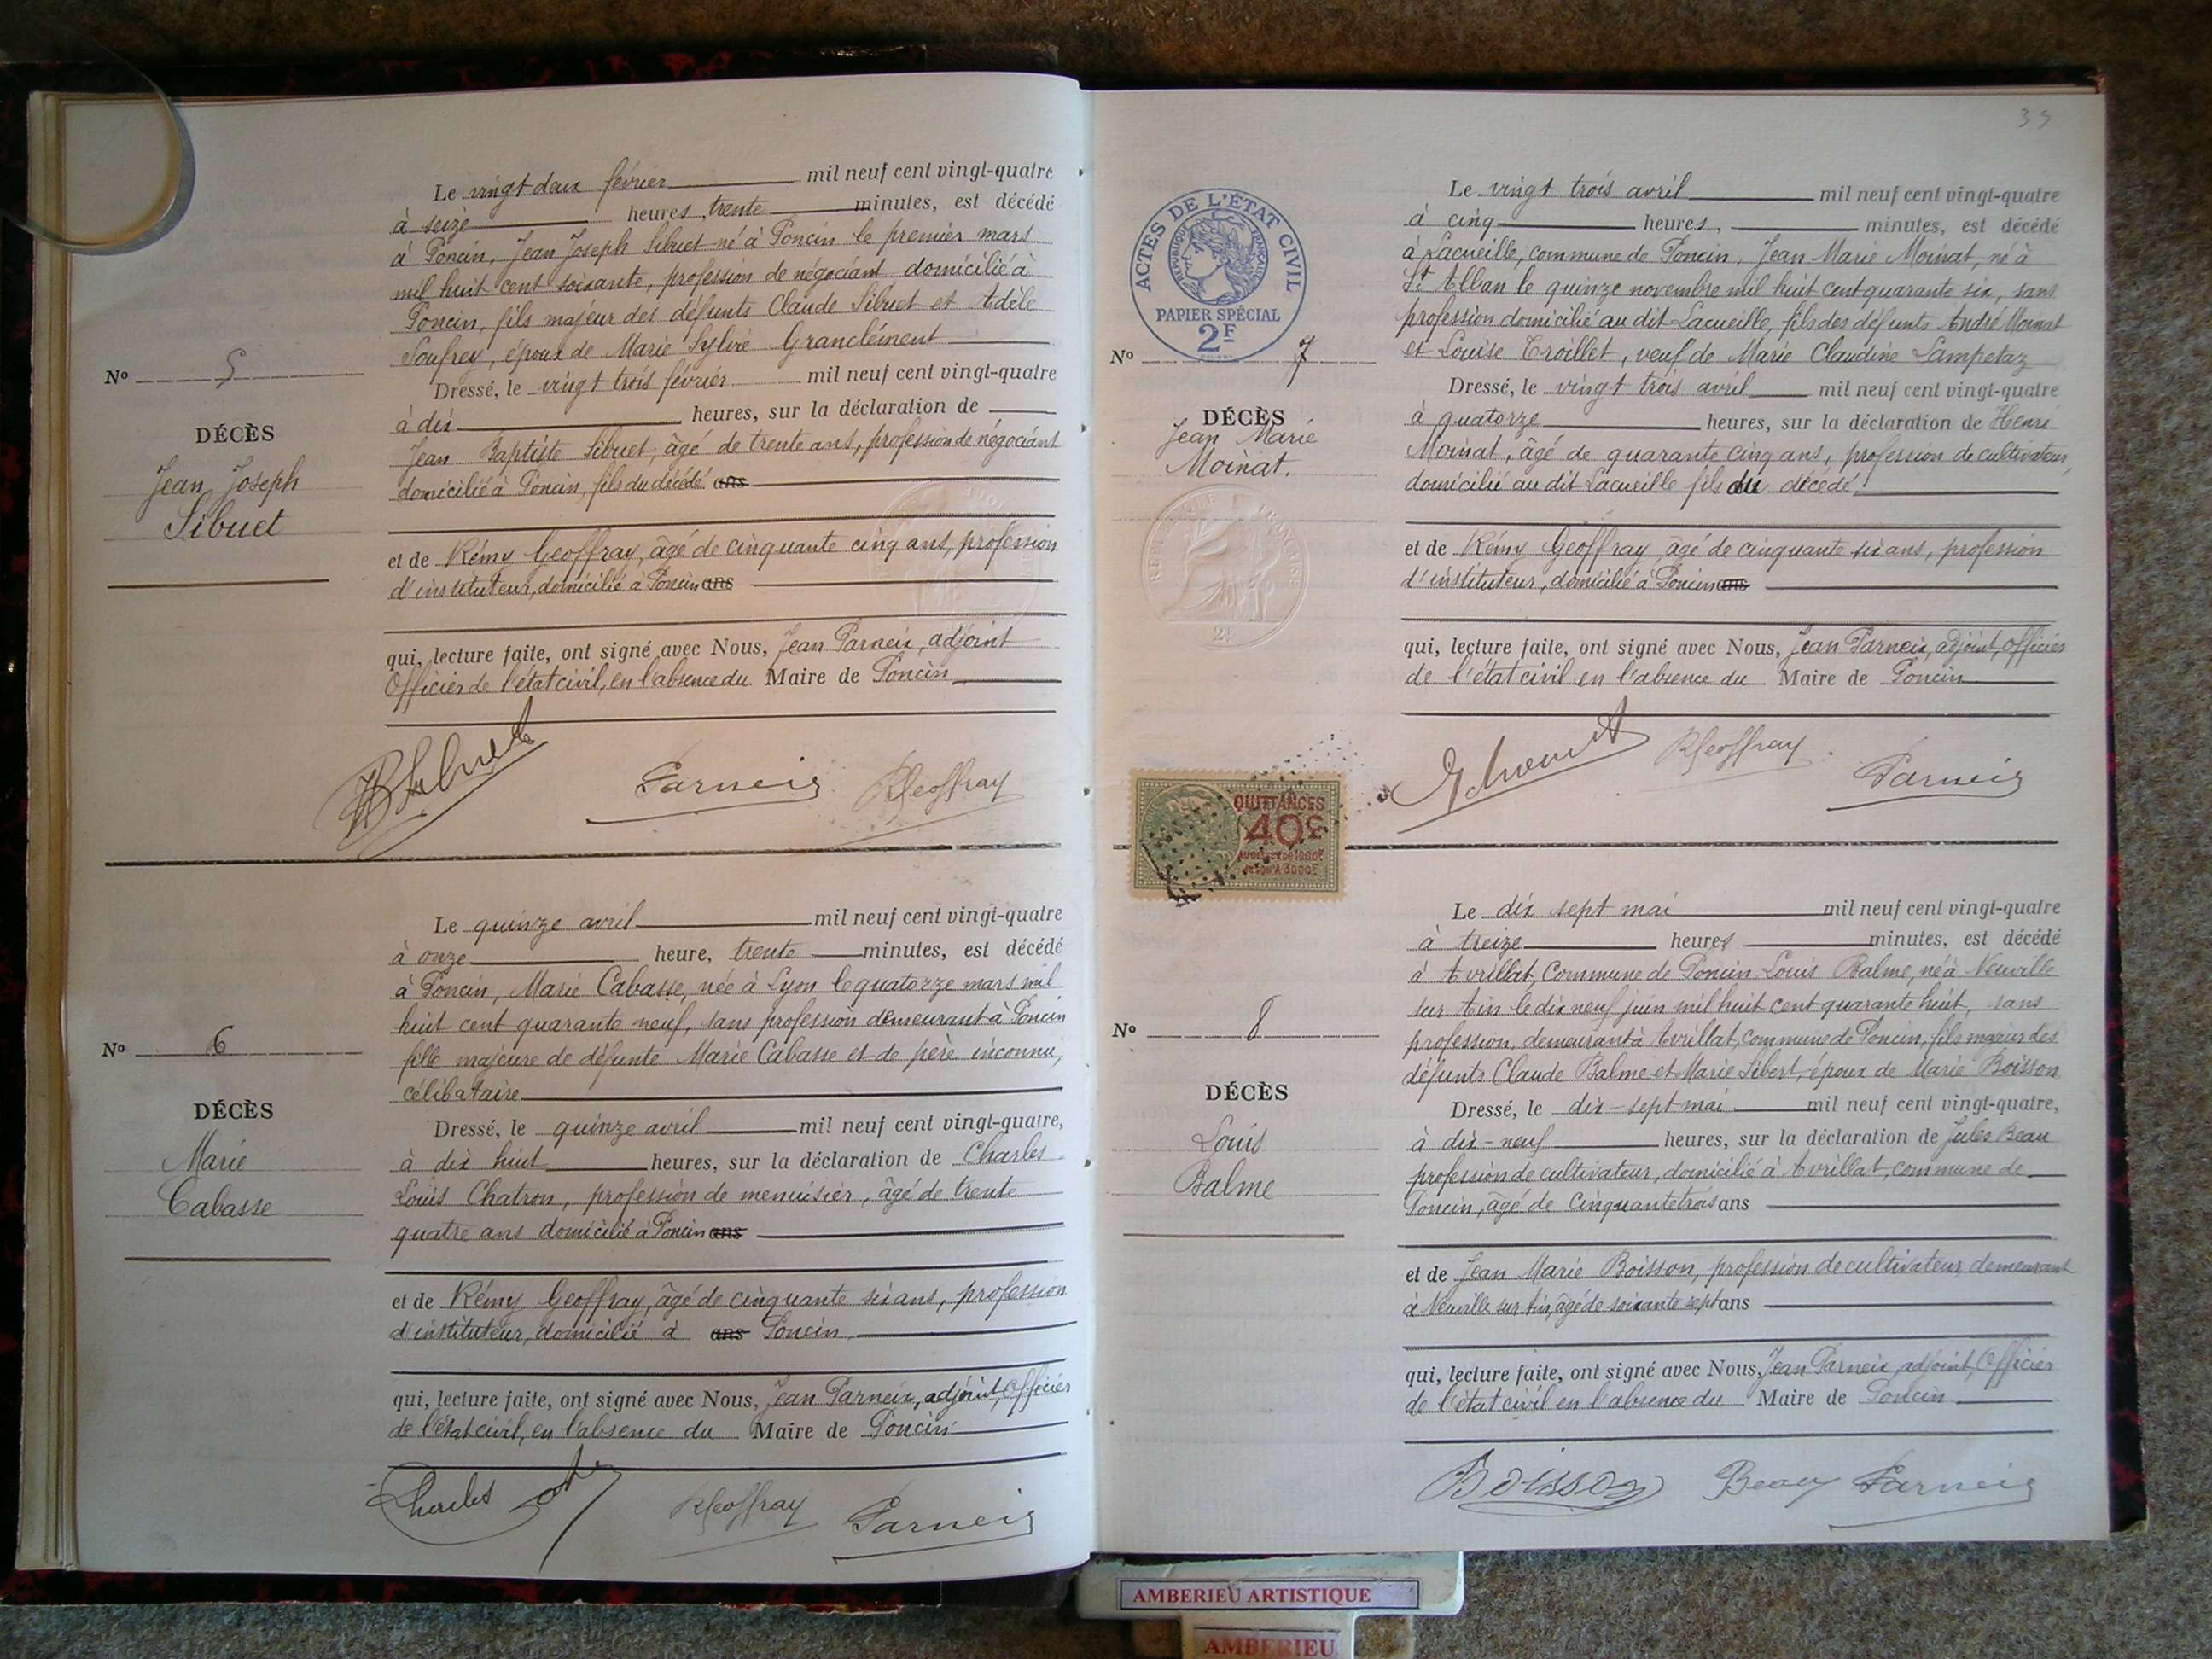 Le vingt deux février mil neuf cent vingt-quatre
à seize heures, trente minutes, est décédé
à Poncin, Jean Joseph Sibuet né à Poncin le premier mars
mil huit cent soixante, profession de négociant domicilié à
Poncin, fils majeur des défunts Claude Sibuet et Adèle
Soufrey, époux de Marie Sylvie Granclément
Nº 5
Dressé, le vingt trois février mil neuf cent vingt-quatre
à dix heures, sur la déclaration de
DÉCÈS
Jean Joseph
Sibuet
Jean Baptiste Sibuet, âgé de trente ans, profession de négociant
domicilié à Poncin, fils du décédé ans
et de Rémy Geoffray, âgé de cinquante cinq ans, profession
d'instituteur, domicilié à Poncin ans
qui, lecture faite, ont signé avec Nous, Jean Parneix, adjoint
Officier de l'état civil, en l'absence du Maire de Poncin
JB Sibuet Parneix RGeoffray
Le quinze avril mil neuf cent vingt-quatre
à onze heure, trente minutes, est décédé
à Poncin, Marie Cabasse, née à Lyon le quatorze mars mil
huit cent quarante neuf, sans profession demeurant à Poncin
fille majeure de défunte Marie Cabasse et de père inconnu,
célibataire
Nº 6
DÉCÈS
Marie
Cabasse
Dressé, le quinze avril mil neuf cent vingt-quatre,
à dix huit heures, sur la déclaration de Charles
Louis Chatron, profession de menuisier, âgé de trente
quatre ans domicilié à Poncin ans
et de Rémy Geoffray, âgé de cinquante six ans, profession
d'instituteur, domicilié à ans Poncin.
qui, lecture faite, ont signé avec Nous, Jean Parneix, adjoint, Officier
de l'état civil, en l'absence du Maire de Poncin
Charles RGeoffray Parneix
39
ACTES DE L'ÉTAT CIVIL
RÉPUBLIQUE FRANÇAISE
PAPIER SPÉCIAL
2F
Le vingt trois avril mil neuf cent vingt-quatre
à cinq heures, minutes, est décédé
à Lacueille, commune de Poncin, Jean Marie Moinat, né à
St Alban le quinze novembre mil huit cent quarante six, sans
profession domicilié au dit Lacueille, fils des défunts André Moinat
et Louise Troillet, veuf de Marie Claudine Lampetaz
Nº 7
DÉCÈS
Jean Marie
Moinat.
RÉPUBLIQUE FRANÇAISE
23
Dressé, le vingt trois avril mil neuf cent vingt-quatre
à quatorze heures, sur la déclaration de Henri
Moinat, âgé de quarante cinq ans, profession de cultivateur,
domicilié au dit Lacueille fils du décédé.
et de Rémy Geoffray âgé de cinquante six ans, profession
d'instituteur, domicilié à Poncin ans
qui, lecture faite, ont signé avec Nous, Jean Parneix, adjoint, Officier
de l'état civil en l'absence du Maire de Poncin
RGeoffray Parneix
QUITTANCES
40c
Le dix sept mai mil neuf cent vingt-quatre
à treize heures minutes, est décédé
à Avrillat, Commune de Poncin Louis Balme, né à Neuville
sur Ain le dix neuf juin mil huit cent quarante huit, sans
profession, demeurant à Avrillat, commune de Poncin, fils majeur des
défunts Claude Balme et Marie Sibert, époux de Marie Boisson
Nº 8
DÉCÈS
Louis
Balme
Dressé, le dix-sept mai mil neuf cent vingt-quatre,
à dix-neuf heures, sur la déclaration de Jules Beau
profession de cultivateur, domicilié à Avrillat, commune de
Poncin, âgé de cinquante trois ans
et de Jean Marie Boisson, profession de cultivateur, demeurant
à Neuville sur Ain, âgé de soixante sept ans
qui, lecture faite, ont signé avec Nous, Jean Parneix, adjoint, Officier
de l'état civil en l'absence du Maire de Poncin
Boisson Beau Parneix
AMBERIEU ARTISTIQUE
AMBERIEU